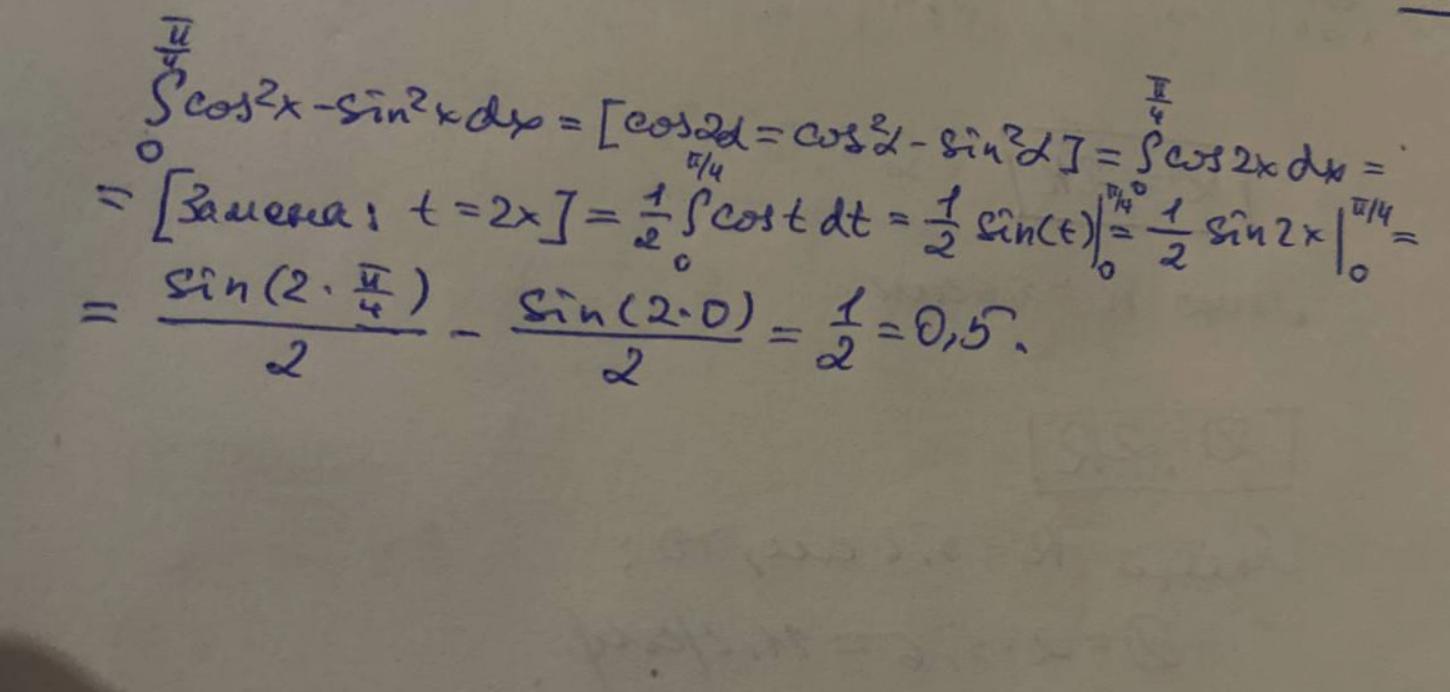 ∫₀^(π/4) cos²x - sin²x dx = [cos2α = cos²α - sin²α] = ∫₀^(π/4) cos2x dx =
= [Замена: t = 2x] = 1/2 ∫₀^(π/4) cos t dt = 1/2 sin(t)|₀^(π/4) = 1/2 sin 2x |₀^(π/4) =
= sin(2·π/4)/2 - sin(2·0)/2 = 1/2 = 0,5.